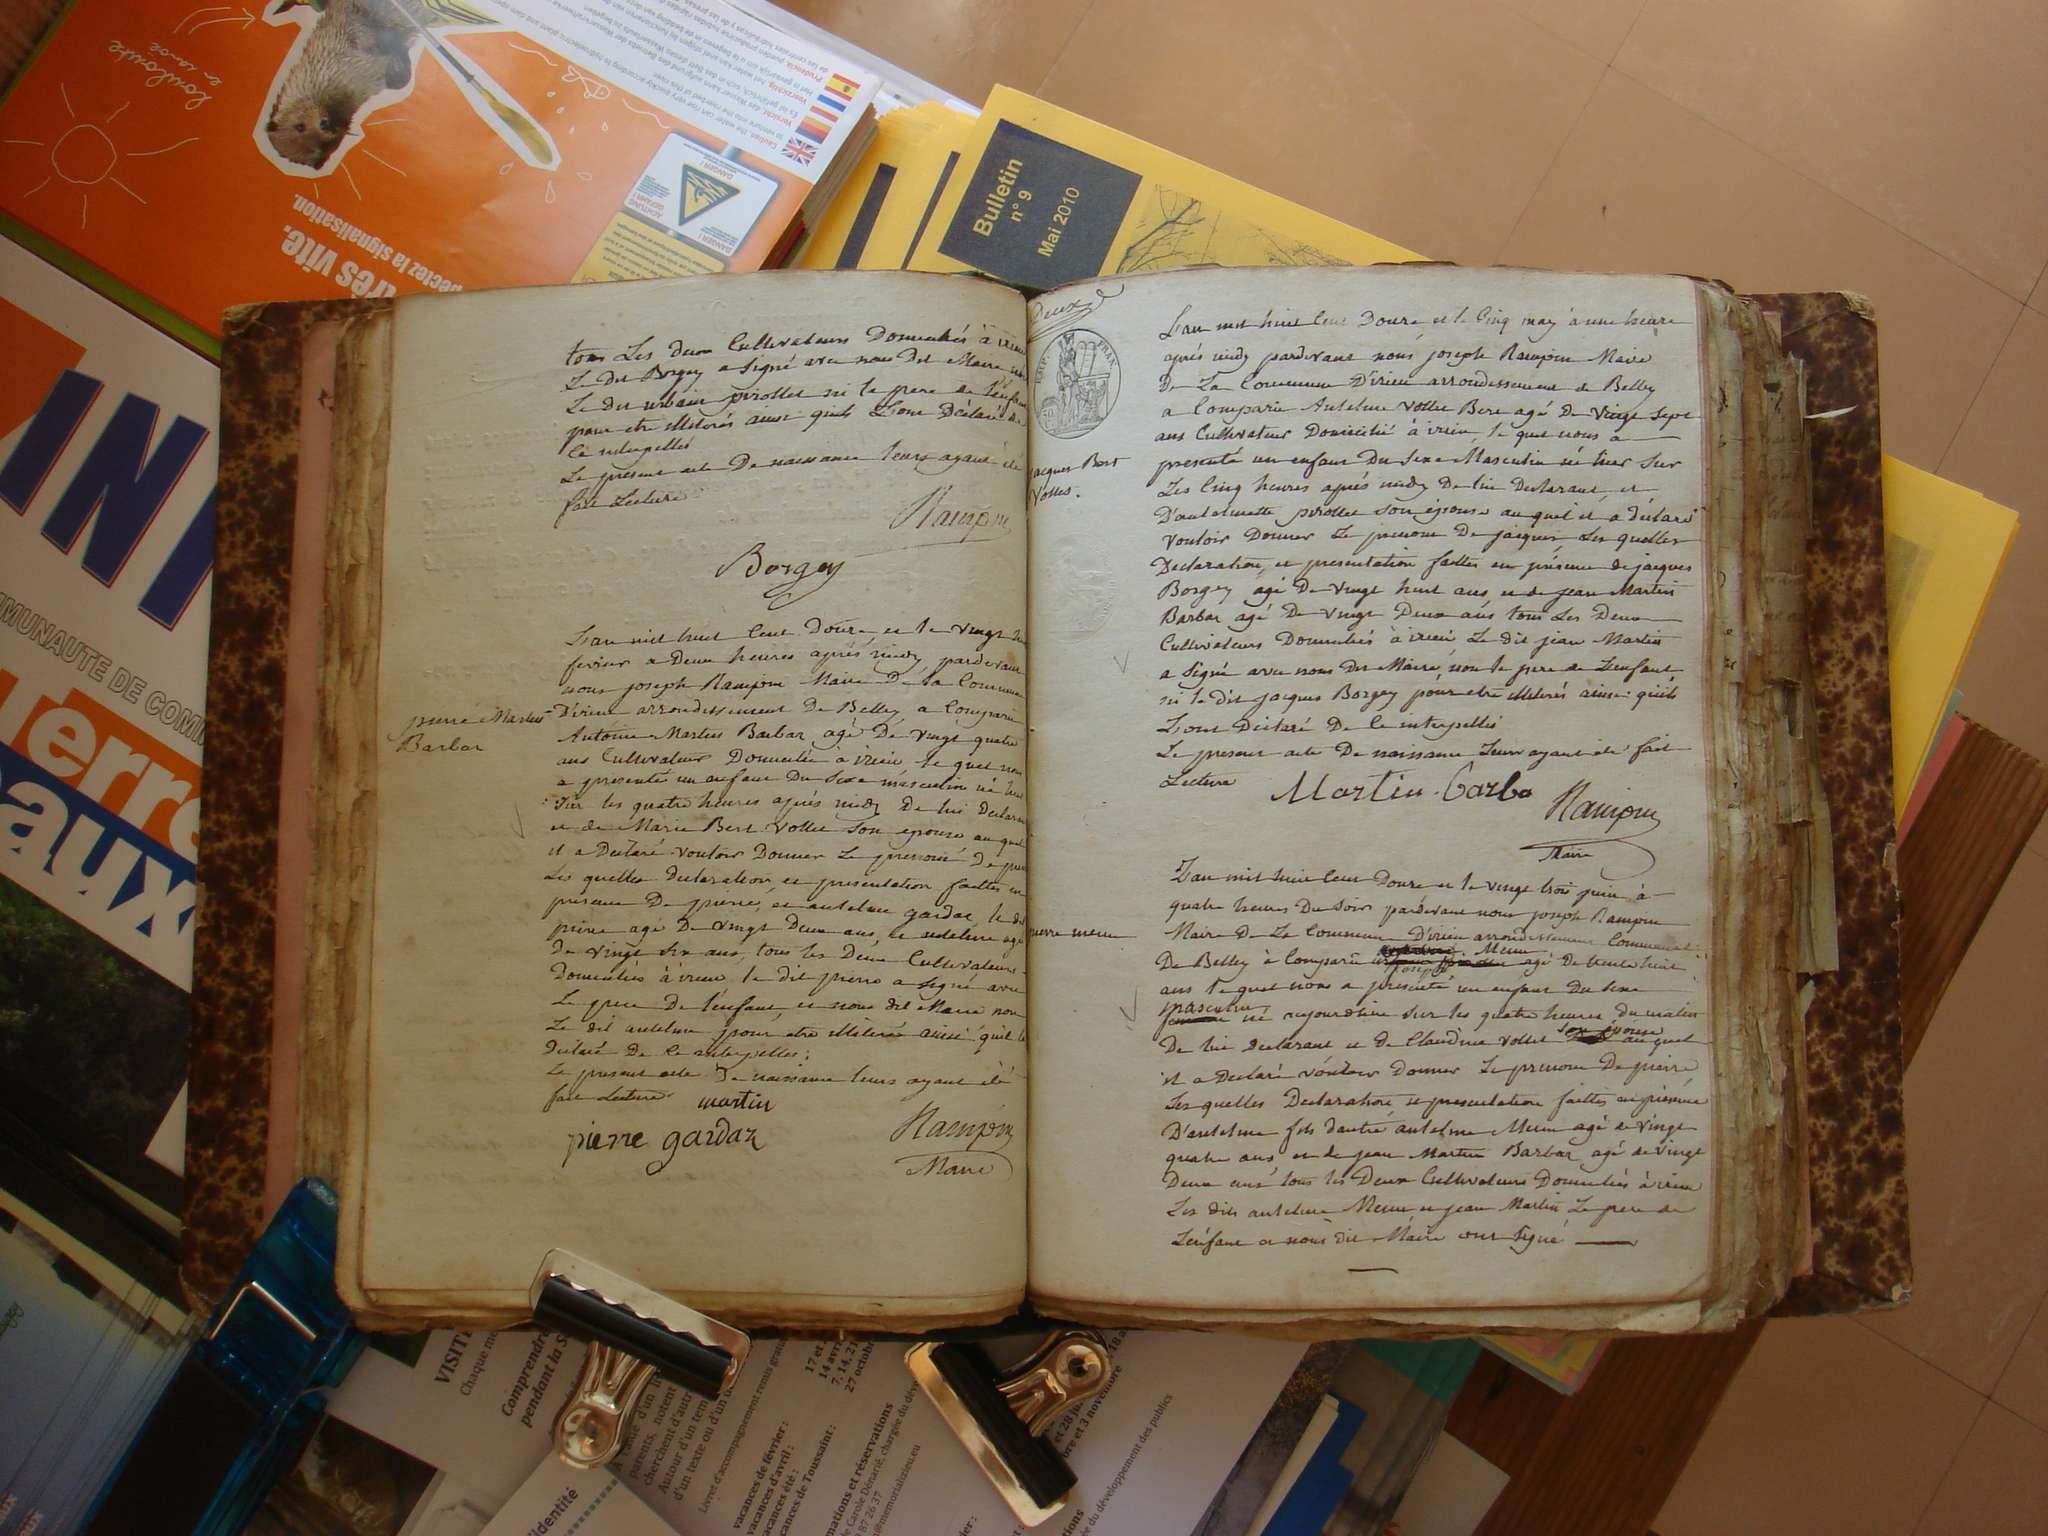 tous Les deux Cultivateurs Domiciliés à irieu
Le dit Borgey a signé avec nous dit Maire non
Le dit urbain pirollet ni le pere de l'enfant
pour etre illiterés ainsi quils L'ont Déclaré de
Ce interpellés
Le present acte De naissance leurs ayant été
fait Lecture
Rampon
Borgey
pierre Martin
Barbar
L'an mil huit Cent Douze et le vingt
fevrier a Deux heures aprés midy pardevant
nous joseph Rampon Maire De la Commune
D'irieu arrondissement De Belley a Comparu
Antoine Martin Barbar agé De vingt quatre
ans Cultivateur Domicilié à irieu le quel nous
a presenté un enfant Du Sexe masculin né hier
Sur les quatre heures aprés midy De lui Declarant
et de Marie Bert Vollet Son epouse au quel
il a Declaré vouloir Donner Le prenom De pierre
Les quelles declaration et presentation faittes en
presence De pierre, et antelme gardaz le dit
pierre agé De vingt Deux ans, et antelme agé
De vingt six ans, tous les Deux Cultivateurs
Domiciliés à irieu le dit pierre a signé avec
Le pere De l'enfant et nous dit Maire non
Le dit antelme pour etre illiteré ainsi qu'il l'a
Déclaré De Ce interpellés;
Le present acte De naissance leurs ayant été
fait Lecture martin
pierre gardaz
Rampon
Maire
Deux
jacques Bert
Vollet.
L'an mil huit Cent Douze et le Cinq may à une heure
aprés midy pardevant nous joseph Rampon Maire
De La Commune D'irieu arrondissement de Belley
a Comparu Antelme Vollet Bert agé De Vingt Sept
ans Cultivateur Domicilié à irieu, le quel nous a
presenté un enfant Du Sexe Masculin né hier Sur
Les Cinq heures aprés midy De lui Declarant et
D'antelmette pirollet son épouse au quel il a déclaré
vouloir Donner Le prenom De jacques, Les quelles
Declaration, et presentation faittes en présence de jacques
Borgey agé De vingt huit ans, et de jean Martin
Barbar agé De vingt Deux ans tous Les Deux
Cultivateurs Domiciliés à irieu Le dit jean Martin
a Signé avec nous Dit Maire, non le pere de L'enfant
ni le dit jacques Borgey pour etre illiterés ainsi quils
L'ont Déclaré De Ce interpellés
Le present acte De naissance Leurs ayant été fait
Lecture
Martin Barba
Rampon
Maire
pierre merm
L'an mil huit Cent Douze et le vingt trois juin à
quatre heures Du Soir pardevant nous joseph Rampon
Maire De La Commune D'irieu arrondissement Communal
De Belley à Comparu joseph Merm agé De trente huit
ans le quel nous a presenté un enfant Du Sexe
masculin né cejourdhui sur les quatre heures du matin
De lui Declarant et de Claudine Vollet son épouse au quel
il a Declaré vouloir donner Le prenom De pierre
Les quelles Declaration et presentation faittes en présence
D'antelme fils d'autre antelme Merm agé de vingt
quatre ans et de jean Martin Barbar agé de vingt
Deux ans tous les Deux Cultivateurs Domiciliés à irieu
Les dits antelme Merm et jean Martin Le pere de
L'enfant et nous dit Maire ont signé
Bulletin
n° 9
Mai 2010
loulouttre
en canoë
très vite,
pectez la signalisation.
DANGER !
ACHTUNG
GEFAHR !
IN
MMUNAUTE DE COMM
uerre
eaux
VISIT
Chaque me
Comprendr
pendant la S
vacances de février :
vacances d'avril :
vacances été :
cances de Toussaint :
17 et
14 avri
7, 14, 21
27 octob
mations et réservations
e Carole Dénarié, chargée du déve
87 26 37
@memorializieu.eu
et 28 ju
bre et 3 novembre
e du développement des publics
Livret d'accompagnement remis gratui
l'identité